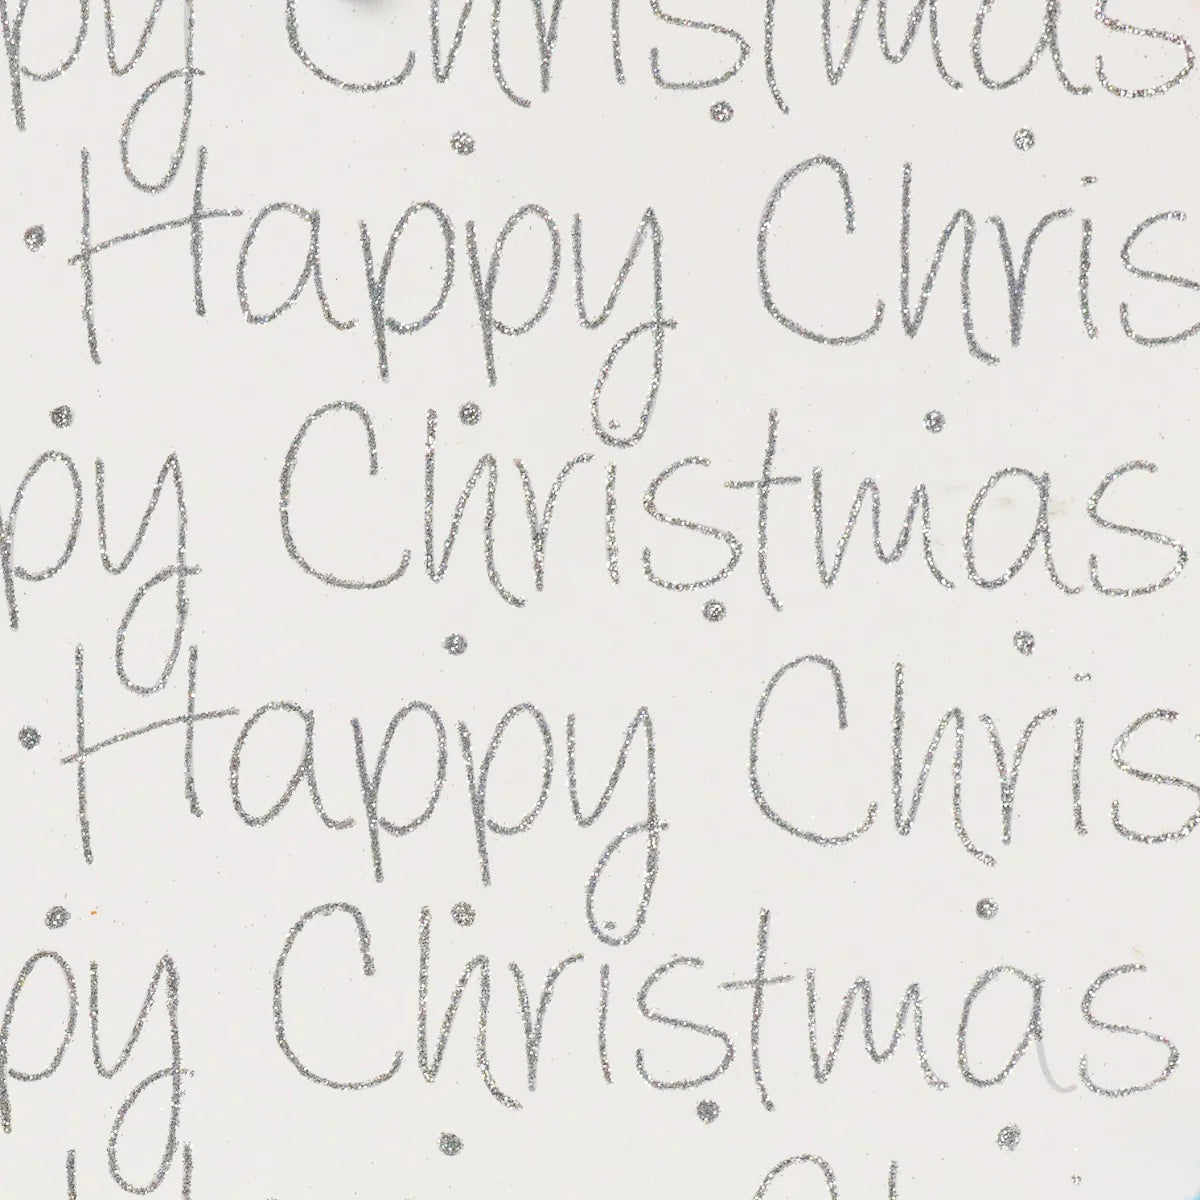 py Christmas
Happy Chris
py Christmas
Happy Chris
py Christmas